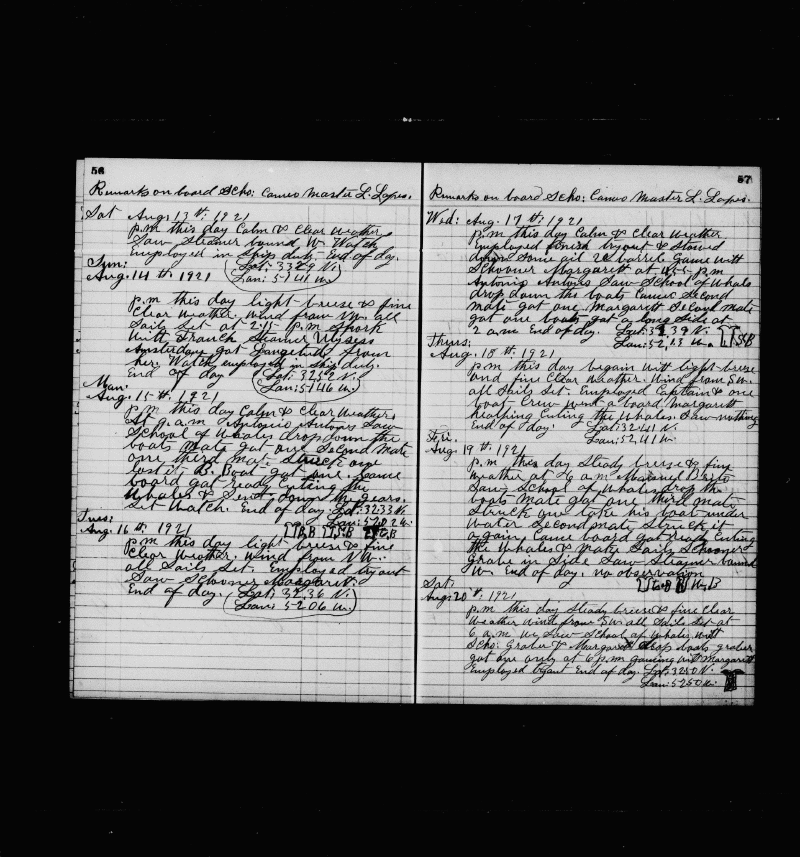 56
Remarks on board Scho: Cameo Master L. Lopes.
Sat Aug. 13th. 1921
p.m this day Calm & Clear Weather
Saw Steamer bound W. Watch
Employed in Ship duty. End of day.
Sun: Lat: 3329 N.
Aug. 14th. 1921 Lon: 5141 W.
p.m this day light breeze & fine
Clear Weather. Wind from all
Sails Set at 2.15 p.m Spork
With French Steamer Ulysess
Amsterdam got Longetude from
her. Watch employed in Ship duty.
End of day Lat: 3252 N.
Mon. Lon: 5146 W.
Aug. 15th. 1921
p.m this day Calm & Clear Weather.
at a.m Antonio Antovs Saw
School of Whales drop down the
boats Mate got one Second Mate
one third mate Struck one
lost it B. Boat got one. Came
board got ready Cuting the
Whales & Send down the gears.
Set Watch. End of day. Lat: 3233 N.
Tues: Lon: 5202 W.
Aug. 16th. 1921 B S.B B
p.m this day light breeze & fine
Clear Weather. Wind from
all Sails Set. Employed tryout
Saw Schooner Margarett.
End of day. Lat: 32.36 N.
Lon: 5206 W.
57
Remarks on board Scho: Cameo Master L. Lopes.
Wed: Aug. 17th. 1921
p.m this day Calm & Clear Weather
Employed finish tryout & Stowed
down Some oil barrels Game Witt
Schooner Margarett at p.m
Antonio Antovs Saw School of Whale
drop down the boats Cameo Second
mate got one Margarett Second Mate
got one boat got a long Side at
2 a.m End of day. Lat: 3239 N. S.B
Thurs: Lon: 52,13 W.
Aug. 18th. 1921
p.m this day begain Witt light breeze
and fine Clear Weather. Wind from S.W.
all Sails Set. Employed Captain & one
boat Crew Went a board Margarett
healping Cuting the Whales. Saw nothing
End of day. Lat: 3241 N.
Fri. Lon: 52,41 W.
Aug. 19th. 1921
p.m this day Steady breeze & fine
Weather at 6 a.m
Saw School of Whales drop the
boats Mate got one third mate
Struck one toke his boat under
Water Second mate Struck it
again, Came board got ready Cuting
the Whales & Make Sails Schooner
in Side Saw Steamer bound
W. End of day. no observation
Sat: B W.B
Aug. 20th. 1921
p.m this day Steady breeze & fine Clear
Weather Wind from S.W. all Sails Set at
6 a.m Saw School of Whales Witt
Scho: & Margarett drop boats
got one only at 6 p.m gameing Witt Margarett
Employed tryout End of day. Lat: 3250 N.
Lon: 5250 W.